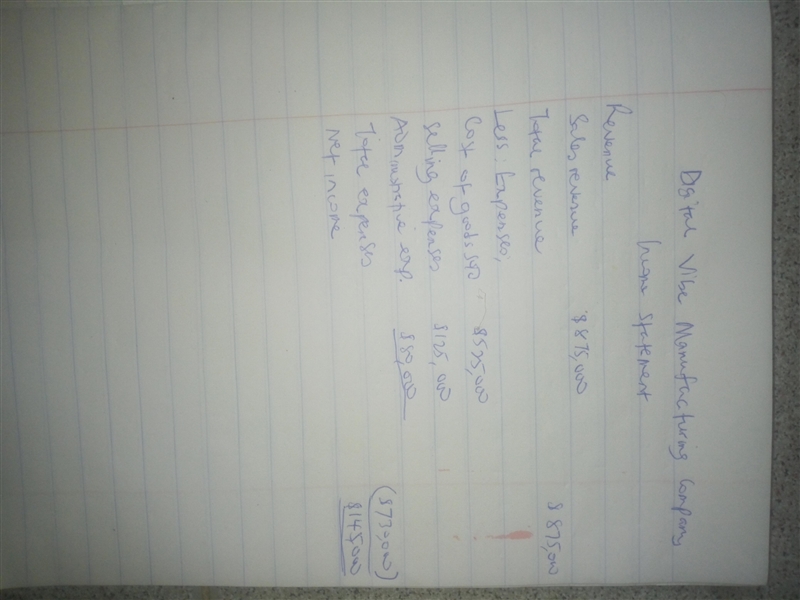 Digital Vibe Manufacturing Company
Income Statement
Revenue
Sales revenue $875,000
Total revenue $875,000
Less: Expenses;
Cost of goods sold $525,000
Selling expenses $125,000
Administrative exp. $80,000
Total expenses ($730,000)
Net income $145,000